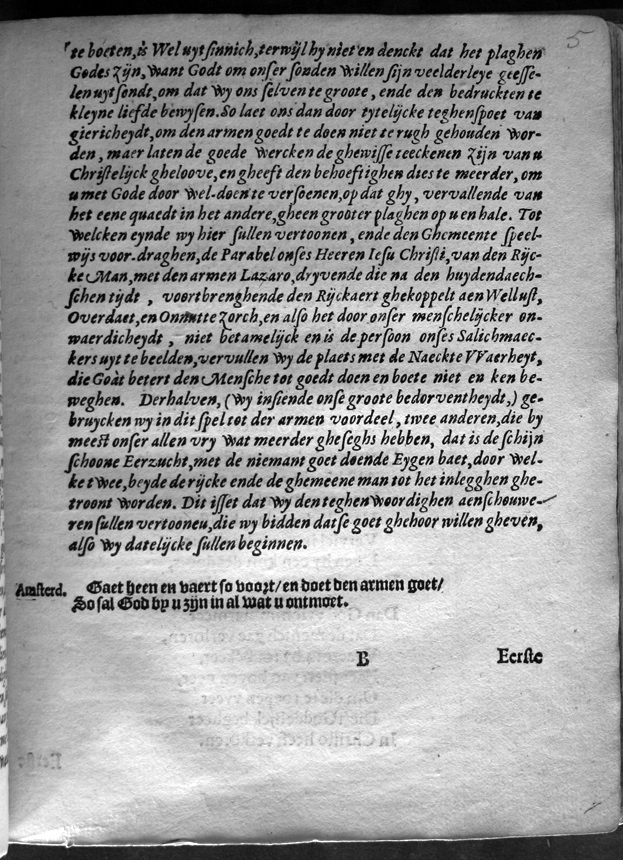 5
te boeten, is Wel uytsinnich, terwijl hy niet en denckt dat het plaghen
Godes zijn, want Godt om onser sonden willen sijn veelderleye geesse-
len uytsendt, om dat wy ons selven te groote, ende den bedruckten te
kleyne liefde bewysen. So laet ons dan door tytelijcke teghenspoet van
giericheydt, om den armen goedt te doen niet te rugh gehouden wor-
den, maer laten de goede wercken de ghewisse teeckenen zijn van u
Christelijck gheloove, en gheeft den behoeftighen dies te meerder, om
u met Gode door wel-doen te versoenen, op dat ghy, vervallende van
het eene quaedt in het andere, gheen grooter plaghen op u en hale. Tot
welcken eynde wy hier sullen vertoonen, ende den Ghemeente speel-
wijs voor-draghen, de Parabel onses Heeren Iesu Christi, van den Rijc-
ke Man, met den armen Lazaro, dryvende die na den huydendaech-
schen tijdt, voortbrenghende den Rijckaert ghekoppelt aen Wellust,
Overdaet, en Onnutte zorch, en also het door onser menschelijcker on-
waerdicheydt, niet betamelijck en is de persoon onses Salichmaec-
kers uyt te beelden, vervullen wy de plaets met de Naeckte VVaerheyt,
die Godt betert den Mensche tot goedt doen en boete niet en ken be-
weghen. Derhalven, (wy insiende onse groote bedorventheydt,) ge-
bruycken wy in dit spel tot der armen voordeel, twee anderen, die by
meest onser allen vry wat meerder gheseghs hebben, dat is de schijn
schoone Eerzucht, met de niemant goet doende Eygen baet, door wel-
ke twee, beyde de rijcke ende de ghemeene man tot het inlegghen ghe-
troont worden. Dit isset dat wy den teghenwoordighen aenschouwe-
ren sullen vertooneu, die wy bidden datse goet ghehoor willen gheven,
also wy datelijcke sullen beginnen.
Amsterd. Gaet heen en vaert so voort/ en doet den armen goet/
So sal God by u zijn in al wat u ontmoet.
B Eerste